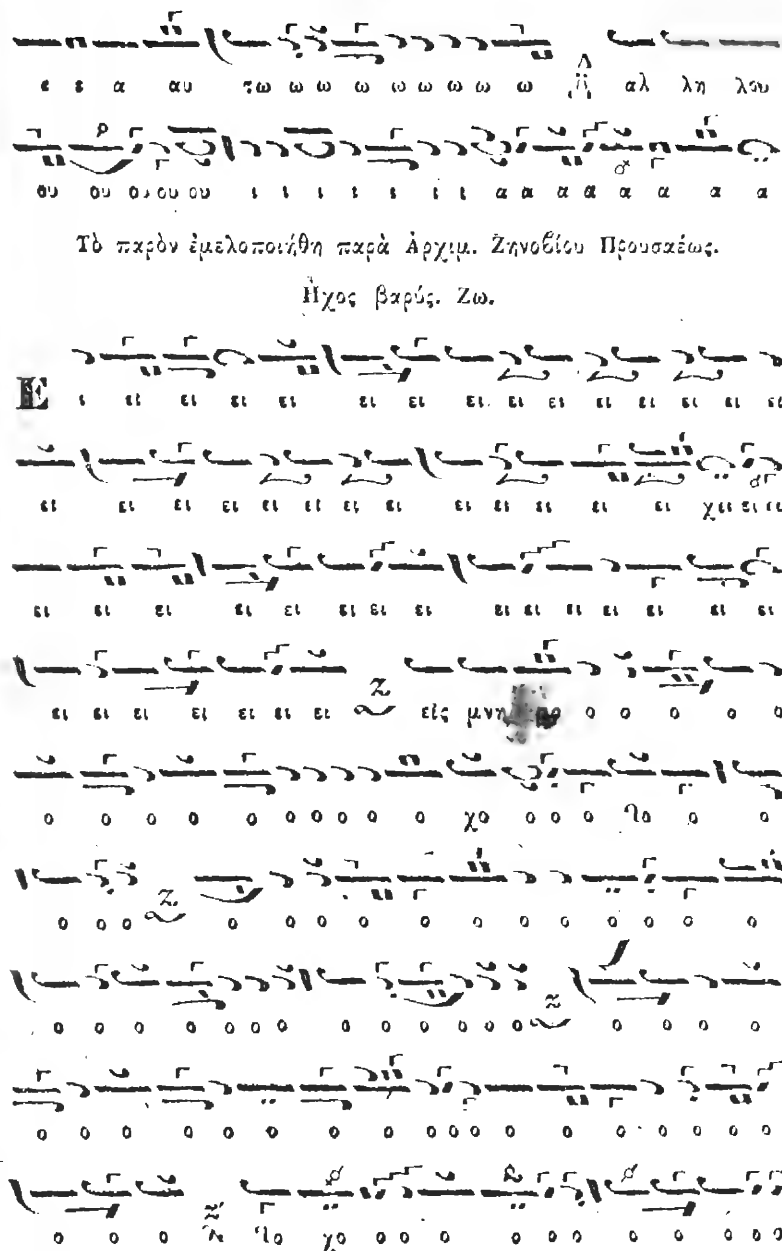 ε ε α αυ τω ω ω ω ω ω ω ω ω αλ λη λου
ου ου ου ου ου ι ι ι ι ι ι ι α α α α α α α α
Τὸ παρὸν ἐμελοποιήθη παρὰ Ἀρχιμ. Ζηνοβίου Προυσαέως.
Ἦχος βαρύς. Ζω.
Ε ι ει ει ει ει ει ει ει ει ει ει ει ει ει ει
ει ει ει ει ει ει ει ει ει ει ει ει ει χει ει ει
ει ει ει ει ει ει ει ει ει ει ει ει ει ει ει
ει ει ει ει ει ει ει εἰς μνη ο ο ο ο ο
ο ο ο ο ο ο ο ο ο ο χο ο ο ο το ο ο
ο ο ο ο ο ο ο ο ο ο ο ο ο ο ο
ο ο ο ο ο ο ο ο ο ο ο ο ο ο ο ο ο ο
ο ο ο ο ο ο ο ο ο ο ο ο ο ο ο ο ο
ο ο ο το χο ο ο ο ο ο ο ο ο ο ο ο